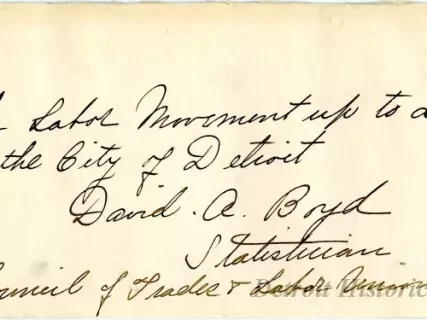 Labor Movement up to
the City of Detroit
David. A. Boyd
Statistician
Council of Trades & Labor Unions
Detroit Historic